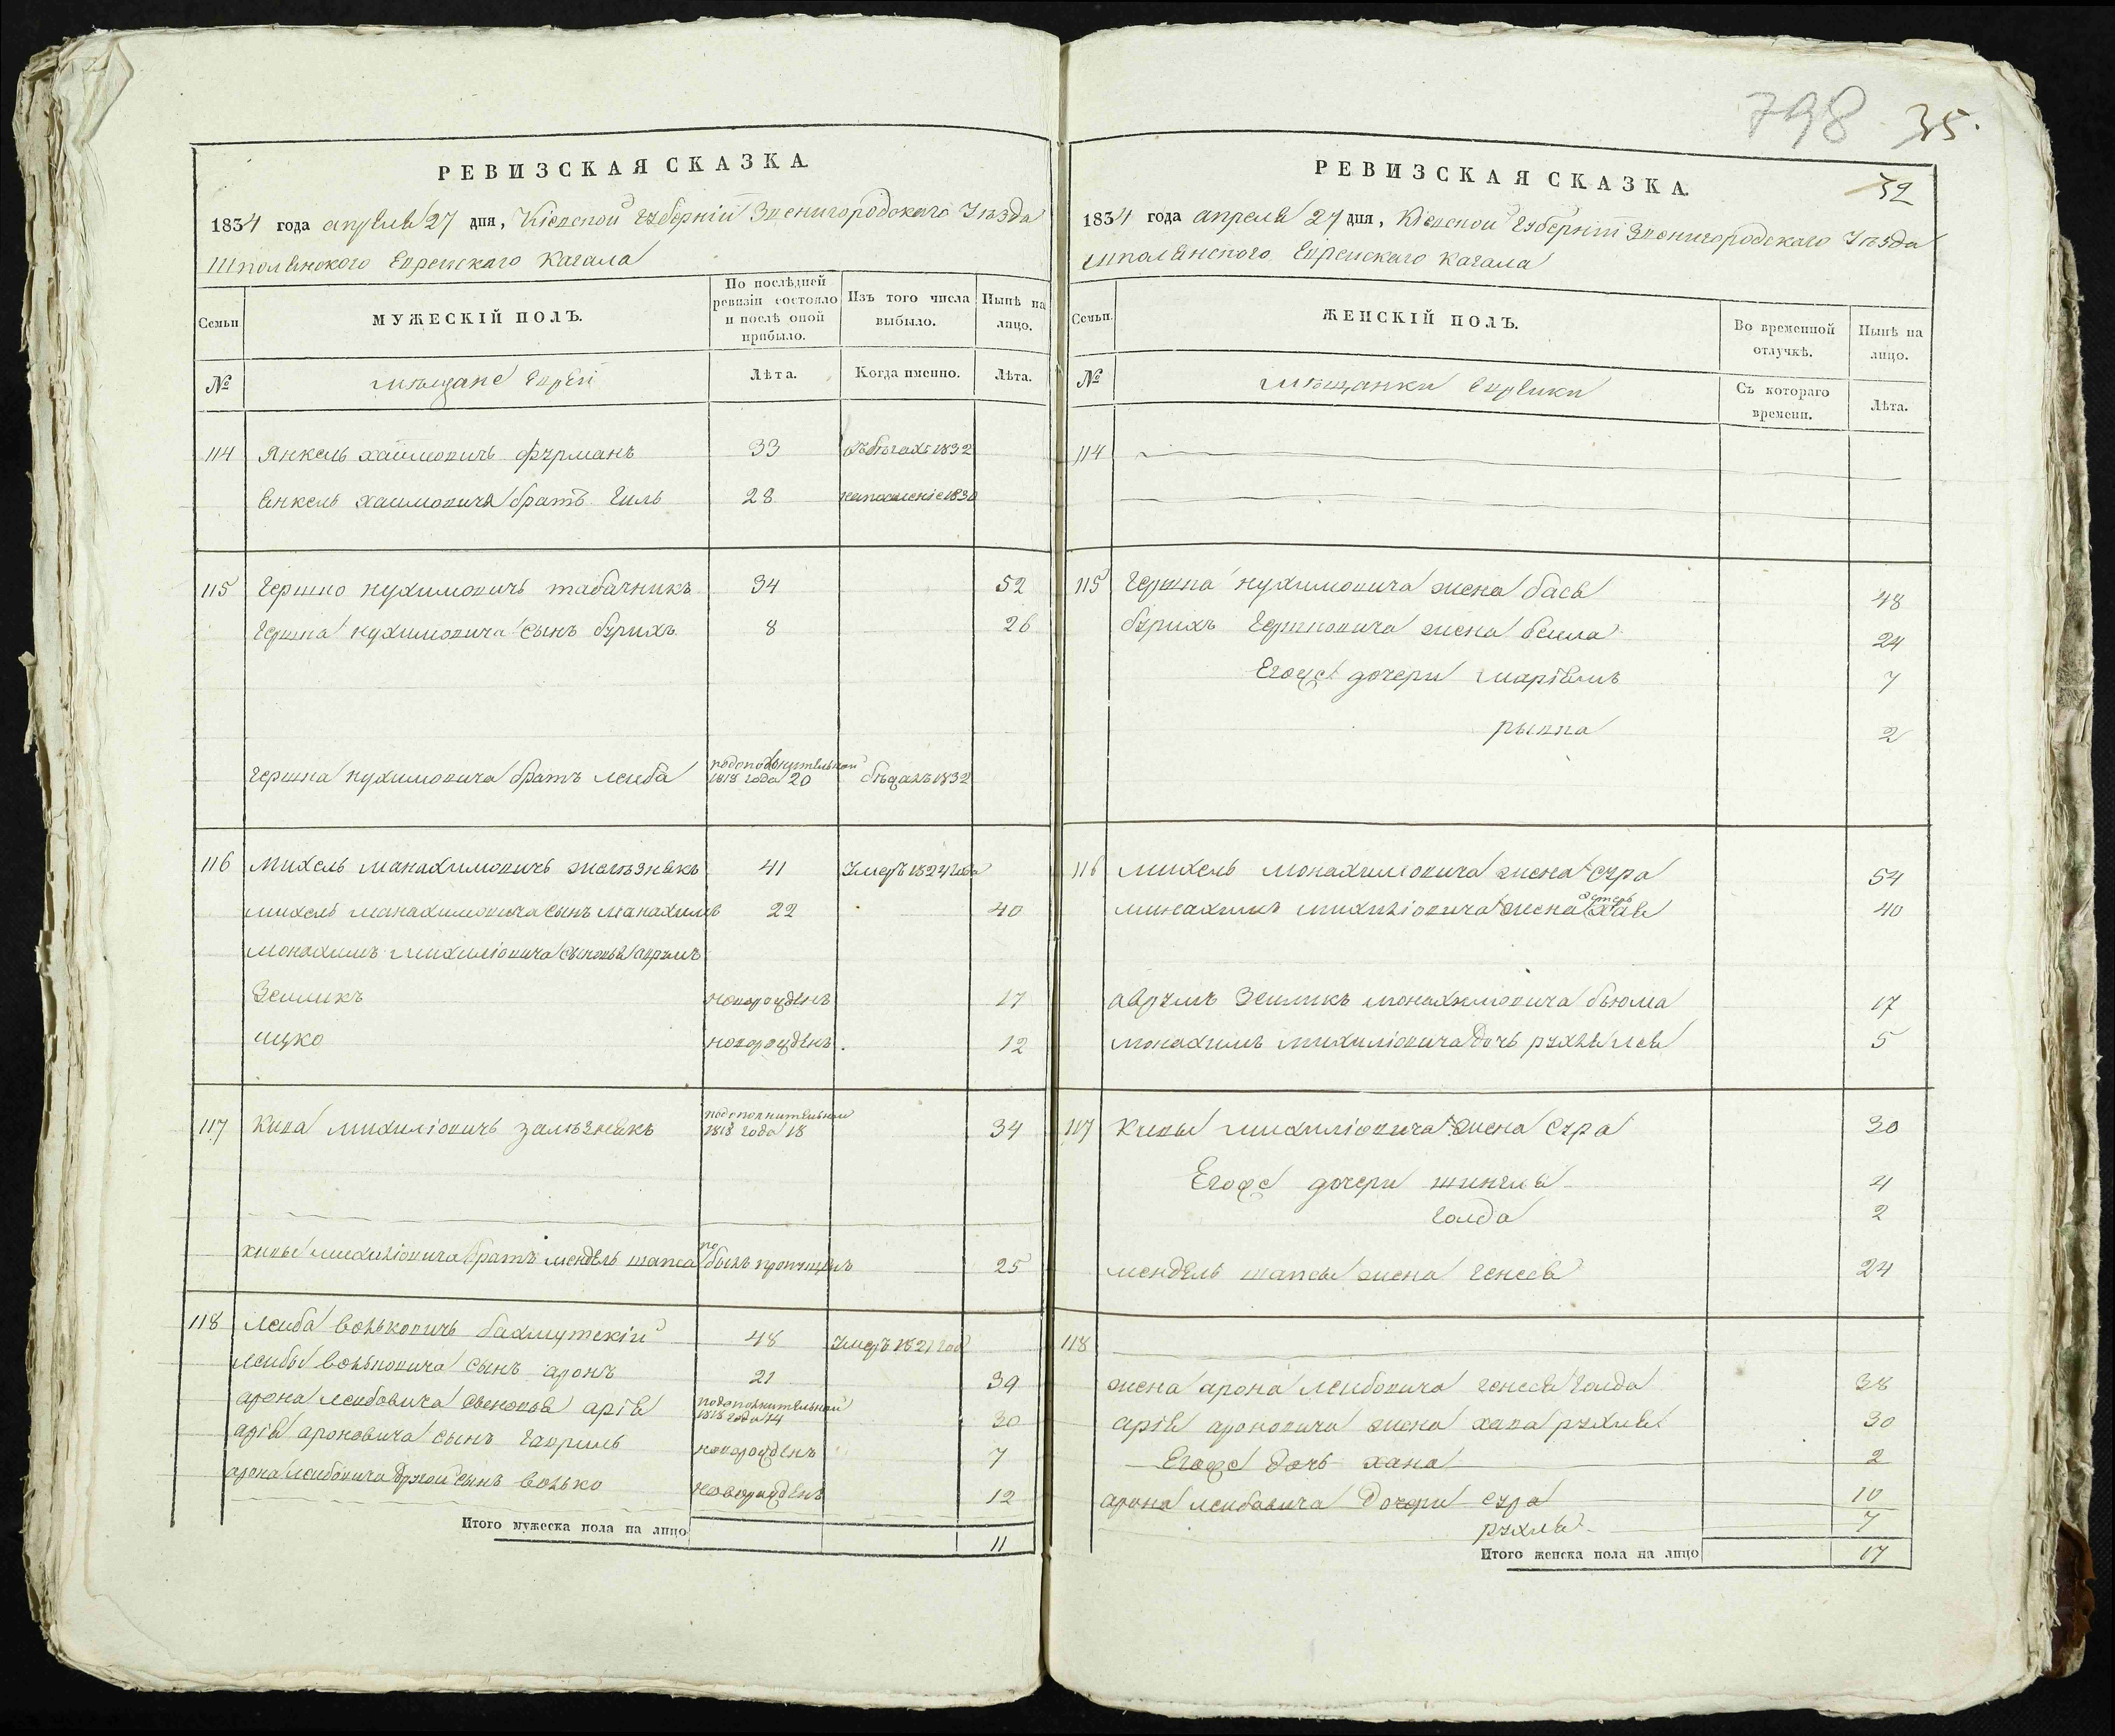 798 35.
РЕВИЗСКАЯ СКАЗКА.
1834 года апреля 27 дня, Кіевской Губерніи Звенигородскаго Уѣзда
Шполянского Еврейскаго Кагала
Семьи
МУЖЕСКІЙ ПОЛЪ.
По послѣдней ревизіи состояло и послѣ оной прибыло.
Изъ того числа выбыло.
Нынѣ на лицо.
№
мѣщане Евреи
Лѣта.
Когда именно.
Лѣта.
114 Янкель хаимовичъ фурманъ 33 въбѣгахъ 1832
Янкель хаимовича братъ Гиль 28 1830
115 Гершко нухимовичъ табачникъ 34 52
Гершка нухимовича сынъ бурихъ 8 26
Гершка нухимовича братъ лейба подополнительной 1818 года 20 1832
116 Михель манахимовичъ желѣзнякъ 41 Умеръ 1824 года
михель манахимовича сынъ манахимъ 22 40
монахимъ михиліовича сыновья аврумъ
Зейликъ новорожденъ 17
ицко новорожденъ. 12
117 Кива михиліовичъ залѣзнякъ подополнительной 1818 года 18 34
кивы михиліовича братъ мендель шапса былъ пропущенъ 25
118 Лейба волковичъ бахмутскій 48 Умеръ 1821 год
лейбы волковича сынъ аронъ 21 39
арона лейбовича сыновья арія подополнительной 1818 года 14 30
арія ароновича сынъ Гавриль новорожденъ 7
арона лейбовича другой сынъ волько новорожденъ 12
Итого мужеска пола на лицо 11
РЕВИЗСКАЯ СКАЗКА.
32
1834 года апреля 27 дня, Кіевской Губерніи Звенигородскаго Уѣзда
Шполянского Еврейскаго Кагала
Семьи.
ЖЕНСКІЙ ПОЛЪ.
Во временной отлучкѣ.
Нынѣ на лицо.
№
мѣщанки Еврейки
Съ котораго времени.
Лѣта.
114
115 Гершка нухимовича жена бася 48
бурихъ Гершковича жена бейла 24
Егоже дочери маріямъ 7
рывка 2
116 михель монахимовича жена сура 54
манахимъ михиліовича жена эстеръ хая 40
аврумъ Зейликъ монахимовича бьюма 17
монахимъ михиліовича дочь рухля лея 5
117 Кивы михиліовича жена сура 30
Егоже дочери шингля 4
голда 2
мендель шапсы жена генеся 24
118
жена арона лейбовича генеся голда 38
арія ароновича жена хава рухля 30
Егоже дочь хана 2
арона лейбовича дочери сура 10
рухля 7
Итого женска пола на лицо 17